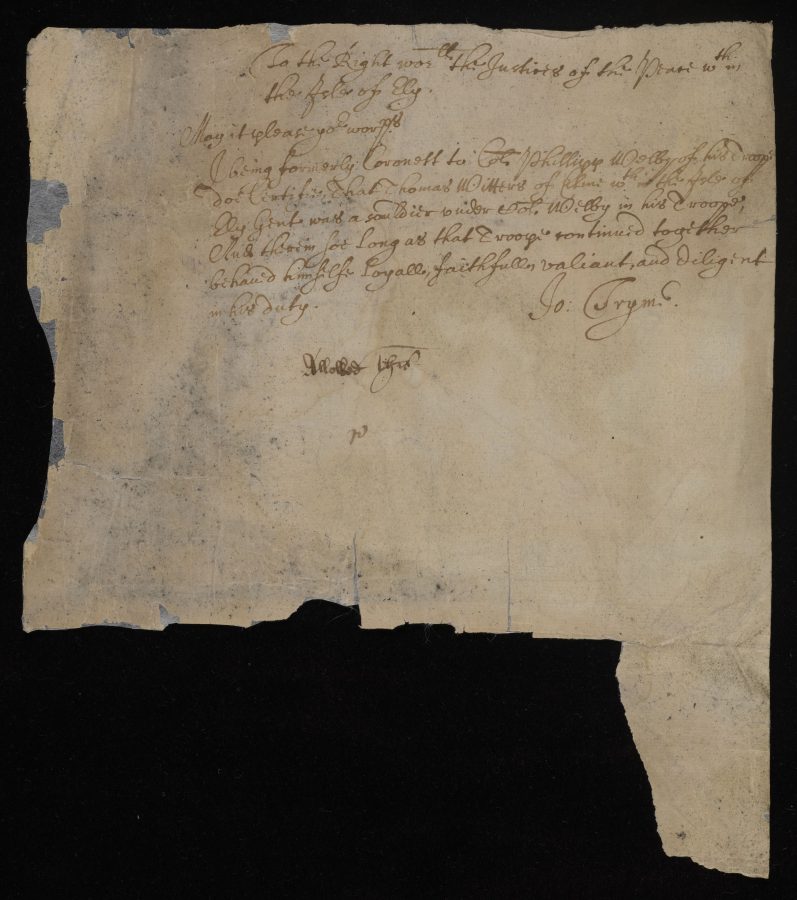 To the Right wor:ll the Justices of the Peace wth in
the Isle of Ely.
May it please yor worpps
I being formerly Coronett to Col: Phillipp Welby of his Troope
Doe Certifie, That Thomas Witters of Elme wth in the Isle of
Ely Gent was a souldier under Col: Welby in his Troope,
And therein soe long as that Troope continued together
behav'd himselfe Loyall, faithfull, valiant, and diligent
in his duty.
Jo:
Allowed